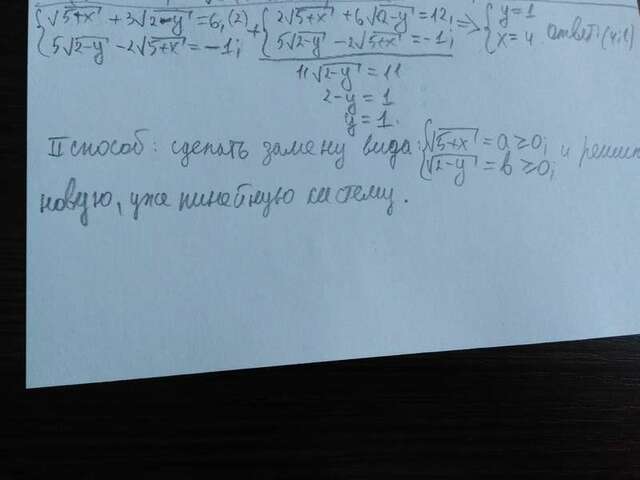 {√5+x + 3√2-y = 6, (2) + {2√5+x + 6√2-y = 12, => {y = 1
{5√2-y - 2√5+x = -1; {5√2-y - 2√5+x = -1; {x = 4 ответ: (4;1)
11√2-y = 11
2-y = 1
y = 1.
II способ: сделать замену вида: {√5+x = a ≥ 0; {√2-y = b ≥ 0; и решить
новую, уже линейную систему.